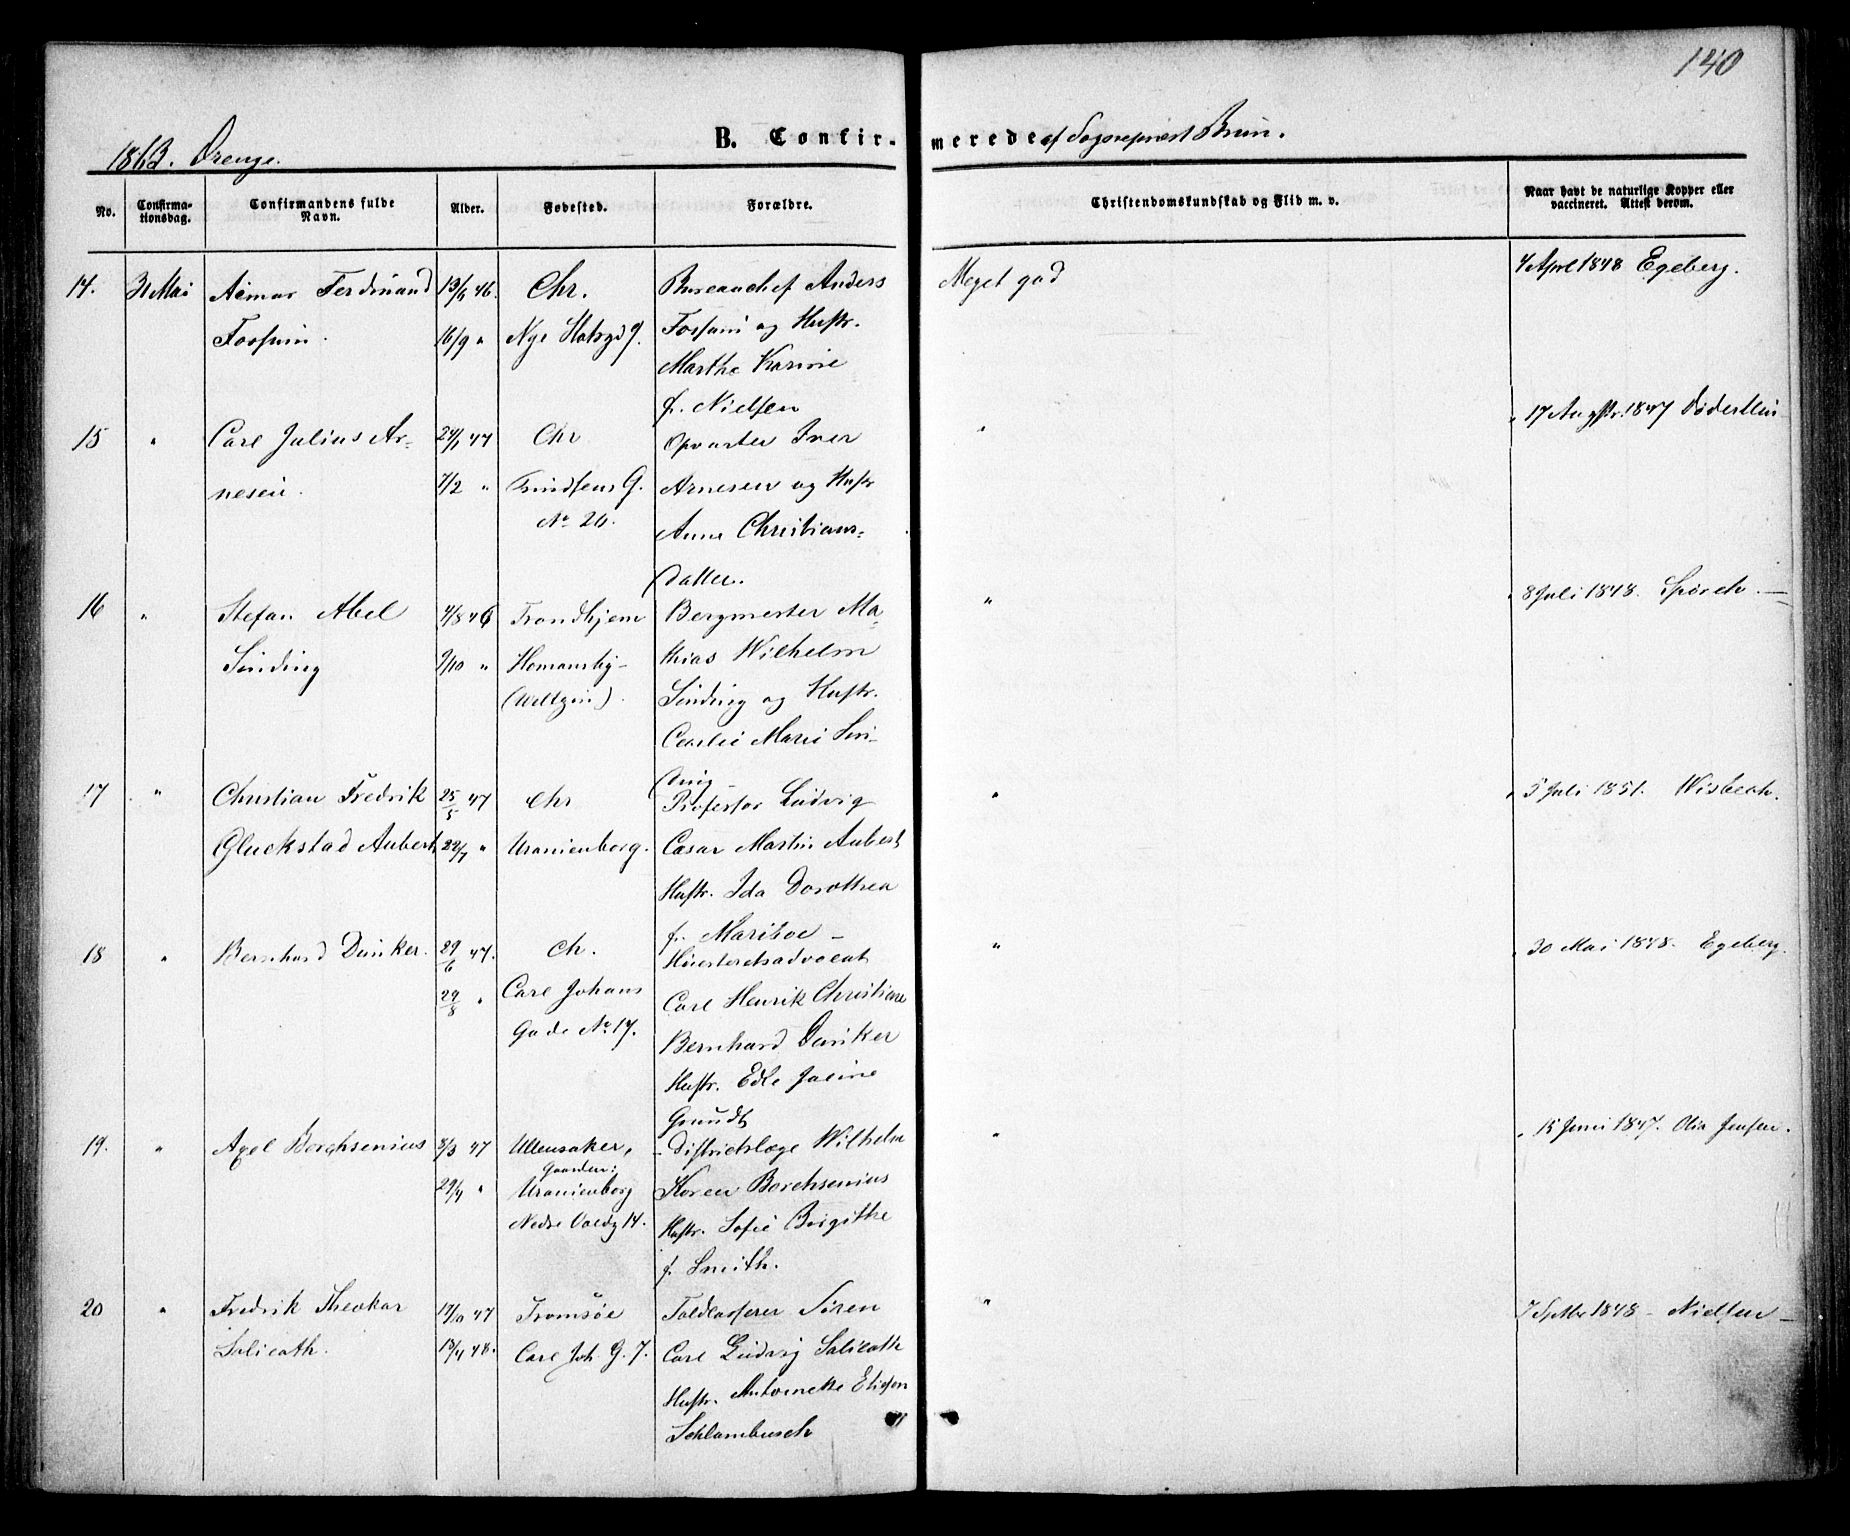 140
1863. Drenge.
B. Confirmerede af Sognepræst Brun.
No.
Confirmationsdag.
Confirmandens fulde Navn.
Alder.
Fødested.
Forældre.
Christendomskundskab og Flid m. v.
Naar havt de naturlige Kopper eller vaccineret. Attest derom.
14. 3 Mai Ferdinand 13/6 46. Chr. Bureauchef Anders Meget god 4 April 1848 Egeberg.
Fossum. 16/9 " Nye Fossum og Hustr.
Marthe Karine
f. Nielsen
15 " Carl Julius Ar- 24/1 47 Chr Opvarter Iver " 17 Augstr. 1847
nesen. 7/2 " G. Arnesen og Hustr
No 20. Anne Christians-
datter.
16 " Stefan Abel 4/8 46 Trondhjem Bergmester Ma- " 8 Juli 1848.
Sinding 9/10 " Homansby- thias Wilhelm
Sinding og Hustr.
Cecilie Marie
17 " Christian Fredrik 25/5 47 Chr Professor Ludvig " 5 Juli 1851. Wisbech.
Gluckstad Aubert 22/7 " Uranienborg. Cæsar Martin Aubert
Hustr. Ida Dorothea
f. Mariboe -
18 " Bernhard Dunker. 29/6 47. Ch. Høiesteretsadvocat " 30 Mai 1848. Egeberg.
29/8 " Carl Johans Carl Henrik Christian
Gade No 17. Bernhard Dunker
Hustr. Edle Jasine
Grundt
19. " Axel Borchsenius 8/3 47 Ullensaker, Districtslæge Wilhelm " 15 Juni 1847. Jensen.
Gaarden:
29/4 " Uranienborg Koren Borchsenius
Nedre Voldg 14. Hustr. Sofie Birgithe
f. Smith.
20 " Fredrik Theokar 17/10 47 Tromsøe Toldkasserer Søren " 7 Septbr 1848 - Nielsen -
Salicath. 13/4 48. Carl Joh. G. 7. Carl Ludvig Salicath
Hustr. Antoinette
Schlambusch